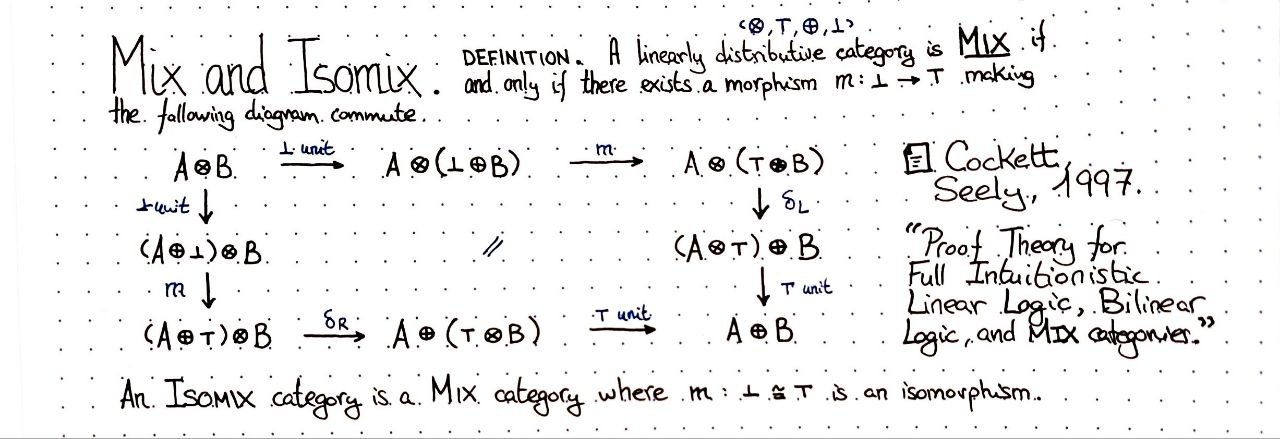 ⟨⊗, ⊤, ⊕, ⊥⟩
Mix and Isomix. DEFINITION. A linearly distributive category is MIX if
and only if there exists a morphism m: ⊥ → ⊤ making
the following diagram commute.
A⊗B ⊥ unit → A⊗(⊥⊕B) m → A⊗(⊤⊕B)
⊥ unit ↓ ↓ δL
(A⊕⊥)⊗B // (A⊗⊤)⊕B
m ↓ ↓ ⊤ unit
(A⊕⊤)⊗B δR → A⊕(⊤⊗B) ⊤ unit → A⊕B
Cockett,
Seely, 1997.
“Proof Theory for
Full Intuitionistic
Linear Logic, Bilinear
Logic, and MIX categories.”
An ISOMIX category is a MIX category where m: ⊥ ≅ ⊤ is an isomorphism.